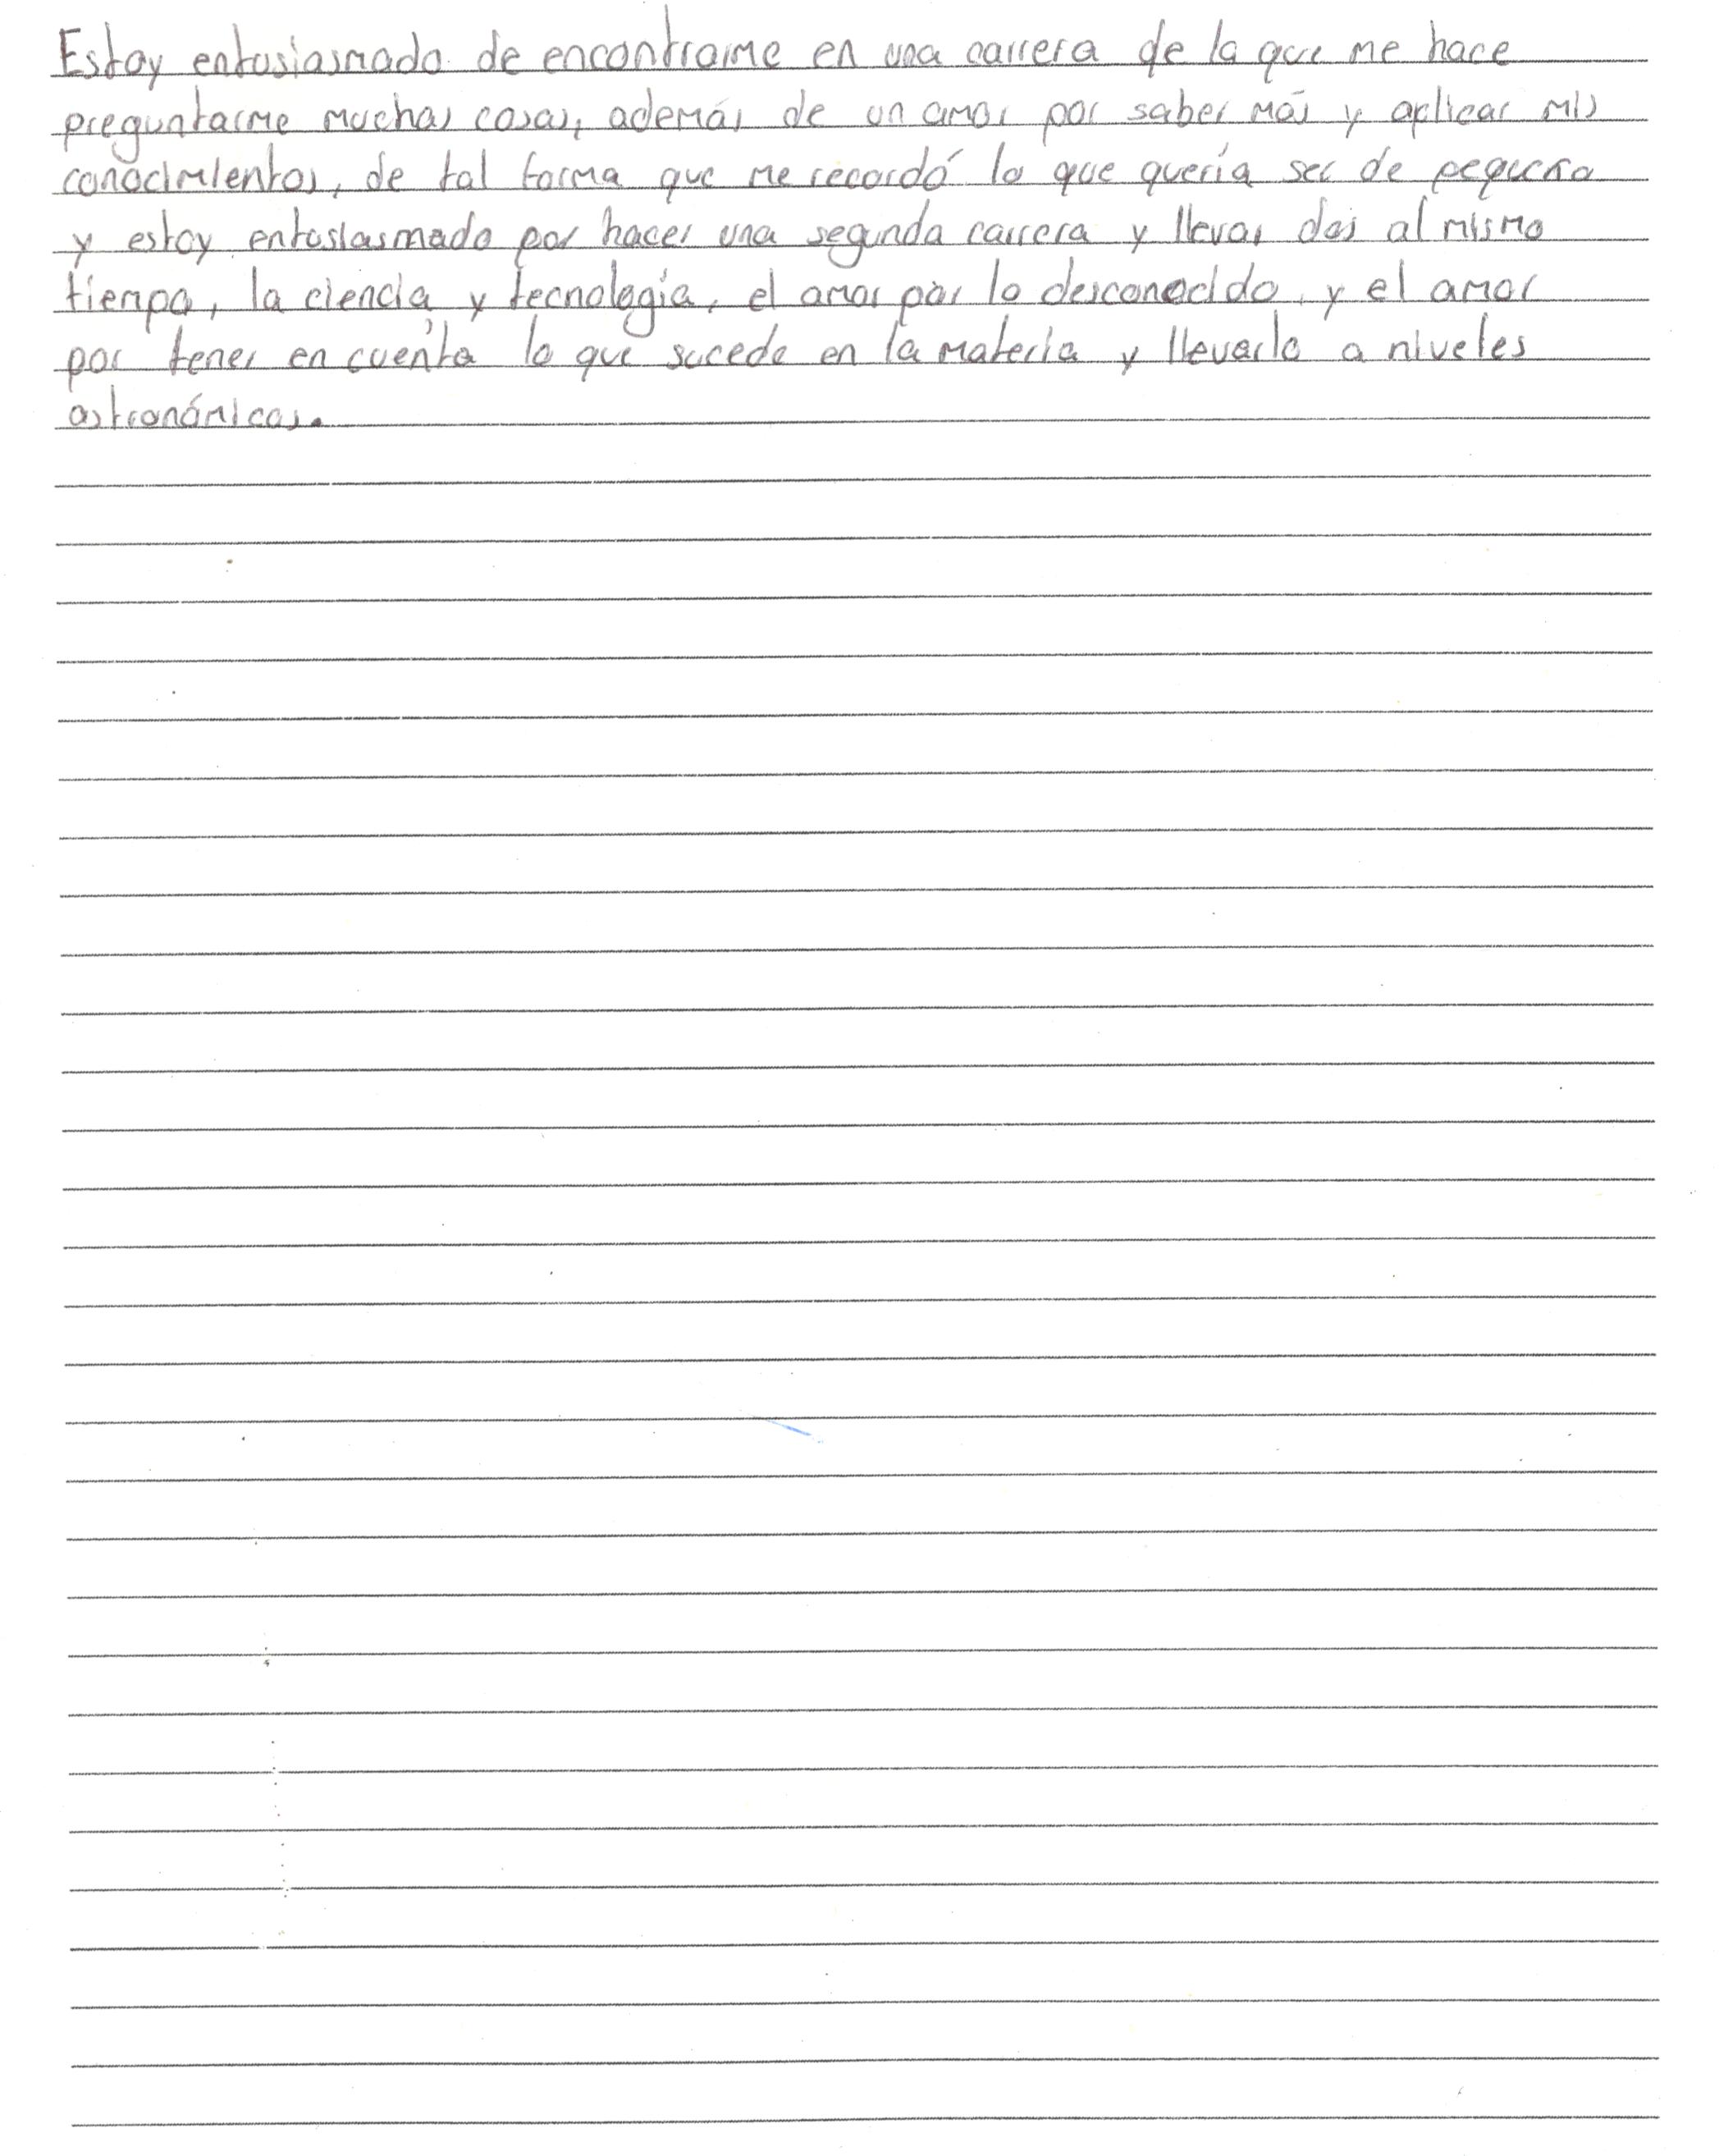 Estoy entusiasmado de encontrarme en una carrera de la que me hace
preguntarme muchas cosas, además de un amor por saber más y aplicar mis
conocimientos, de tal forma que me recordó lo que quería ser de pequeño
y estoy entusiasmado por hacer una segunda carrera y llevar dos al mismo
tiempo, la ciencia y tecnología, el amor por lo desconocido, y el amor
por tener en cuenta lo que sucede en la materia y llevarlo a niveles
astronómicos.